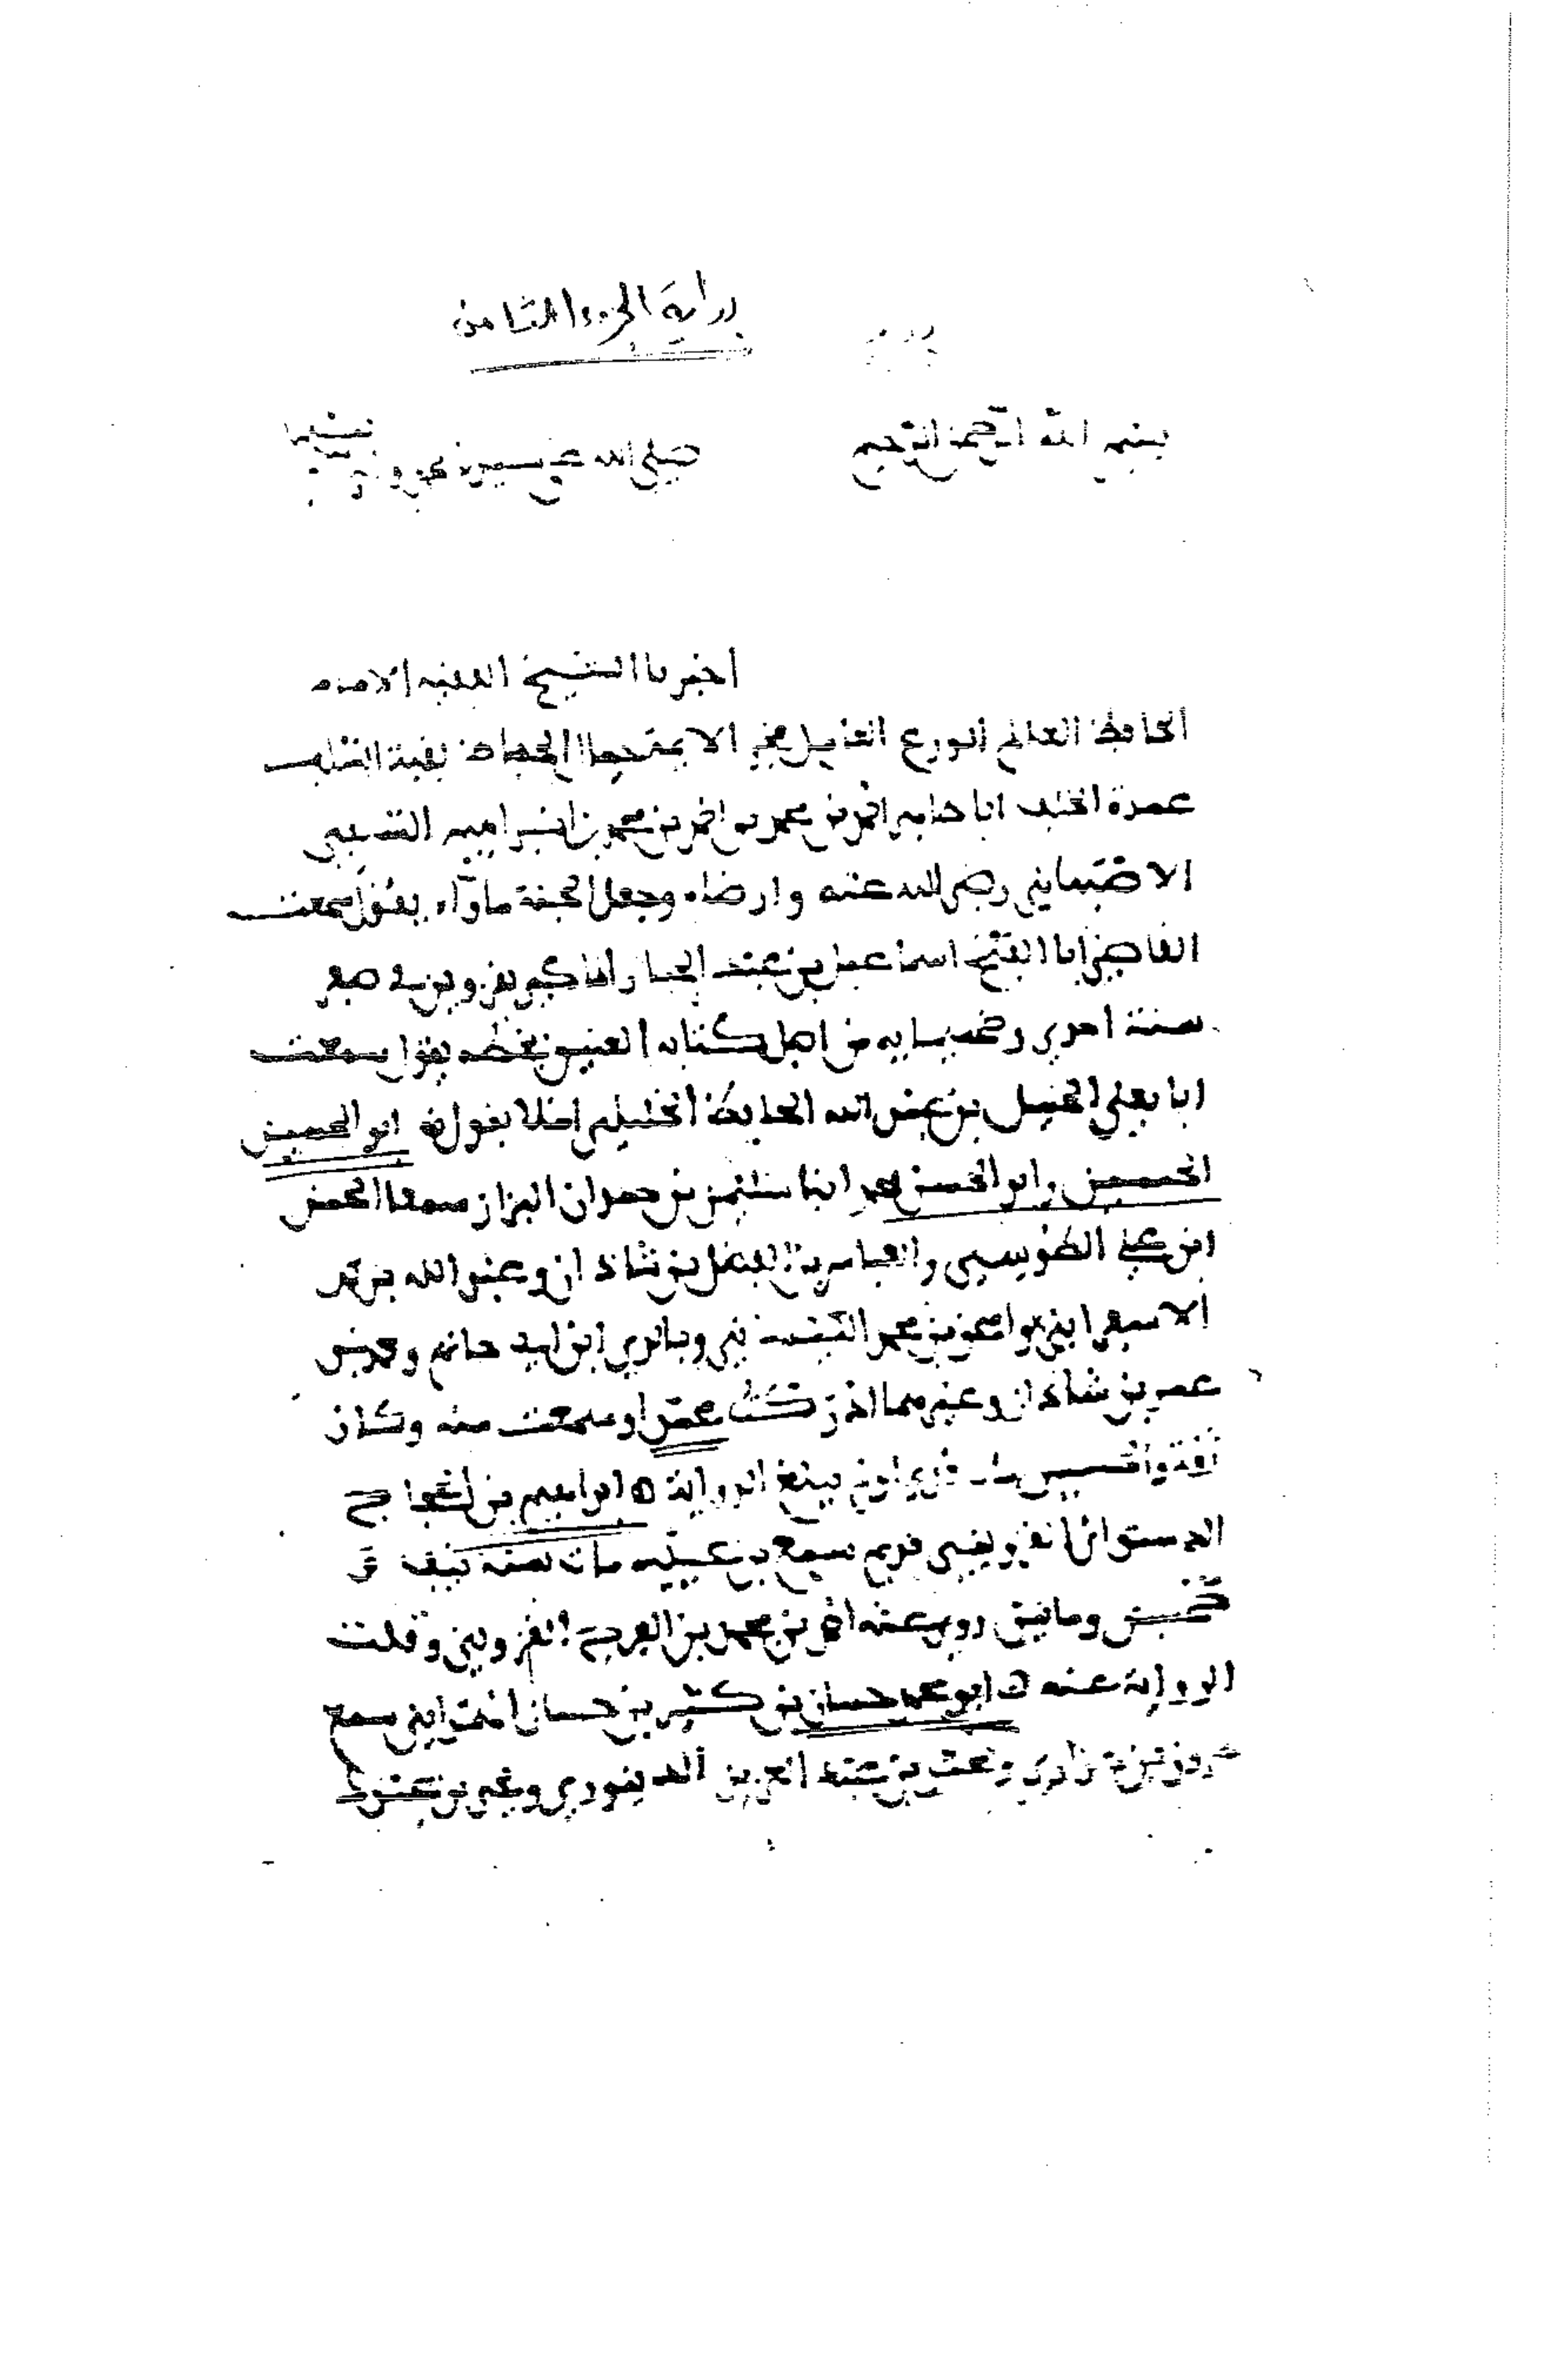 بداية الجزء الثامن
بسم الله الرحمن الرحيم صلى الله على سيدنا محمد وآله
اخبرنا الشيخ الفقيه الامام
الحافظ العالم الورع فخر الايمة جمال الحفاظ بقية السلف
عمدة الخلف ابا طاهر احمد بن محمد بن احمد بن محمد بن ابراهيم السلفي
الاصبهاني رضي الله عنه وارضاه وجعل الجنة ماواه يقول سمعت
القاضي ابا الفتح اسماعيل بن عبد الجبار الماكي بقزوين في صفر
سنة احدى وخمسمايه من اصل كتابه العتيق بخطه يقول سمعت
ابا يعلى الخليل بن عبد الله الحافظ الخليلي املا يقول ابو الحسين
الحسين وابو الحسن محمد ابنا بن حمدان البزاز سمعا الحسن
ابن علي الطوسي والعباس بن الفضل بن شاذان وعبد الله بن محمد
الاسفرايني واسحق بن محمد وبالري ابن ابي حاتم ومحمد بن
عمر بن شاذان وغيرهما ادركت محمدا وسمعت منه وكان
ثقة ولم يبلغ الرواية ه ابراهيم بن الحجاج
الدستوائي القزويني قديم سمع بن عيينه مات سنة نيف و
خمسين ومائتين روى عنه احمد بن محمد بن القزويني وقلت
الرواية عنه ه ابو محمد حسان بن كثير بن حسان سمع
هرون بن هزاري ويحيى بن عبد العزيز الدينوري ومحمد بن